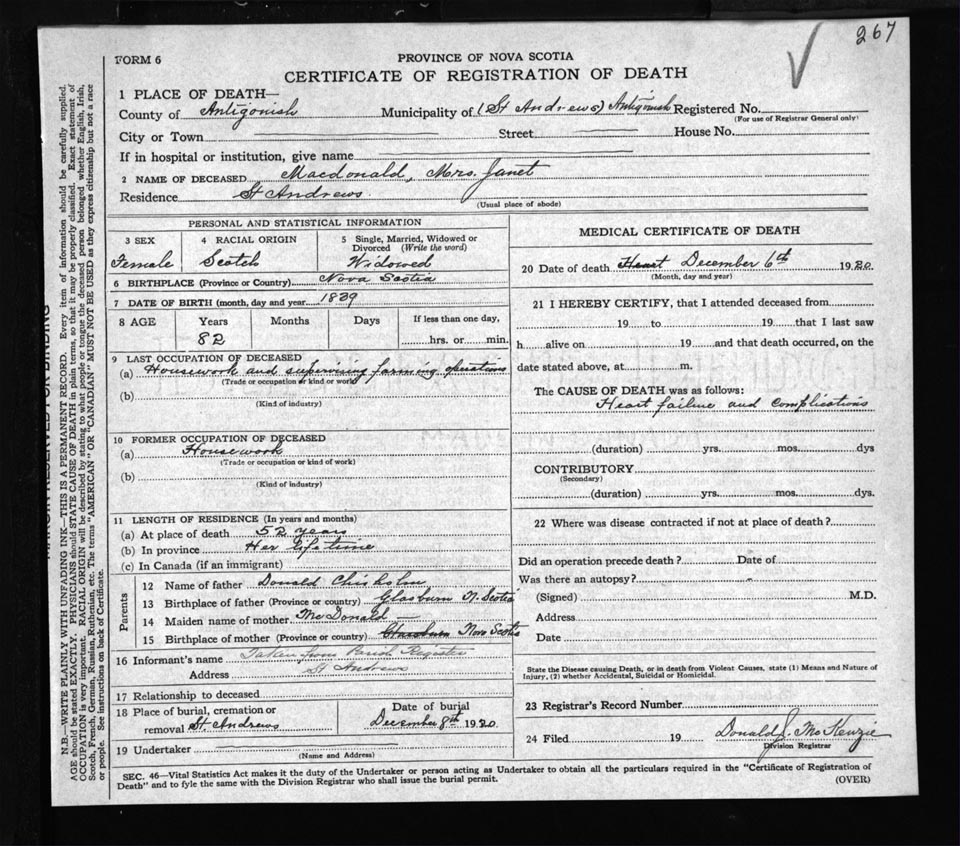 267
FORM 6
PROVINCE OF NOVA SCOTIA
CERTIFICATE OF REGISTRATION OF DEATH
1 PLACE OF DEATH—
County of Antigonish Municipality of (St Andrews) Antigonish Registered No.
(For use of Registrar General only)
City or Town Street House No.
If in hospital or institution, give name
2 NAME OF DECEASED Macdonald, Mrs. Janet
Residence St Andrews
(Usual place of abode)
PERSONAL AND STATISTICAL INFORMATION
3 SEX 4 RACIAL ORIGIN 5 Single, Married, Widowed or Divorced (Write the word)
Female Scotch Widowed
6 BIRTHPLACE (Province or Country) Nova Scotia
7 DATE OF BIRTH (month, day and year) 1839
8 AGE Years Months Days If less than one day,
82 hrs. or min.
9 LAST OCCUPATION OF DECEASED
(a) Housework and supervising farming operations
(Trade or occupation or kind of work)
(b)
(Kind of industry)
10 FORMER OCCUPATION OF DECEASED
(a) Housework
(Trade or occupation or kind of work)
(b)
(Kind of industry)
11 LENGTH OF RESIDENCE (In years and months)
(a) At place of death 52 years
(b) In province Her lifetime
(c) In Canada (if an immigrant)
Parents
12 Name of father Donald Chisholm
13 Birthplace of father (Province or country) Glasburn N. Scotia
14 Maiden name of mother McDonald
15 Birthplace of mother (Province or country) Nova Scotia
16 Informant's name Taken from Parish Register
Address St Andrews
17 Relationship to deceased
18 Place of burial, cremation or removal St Andrews
Date of burial
December 8th 1920
19 Undertaker
(Name and Address)
MEDICAL CERTIFICATE OF DEATH
20 Date of death Heart December 6th 1920
(Month, day and year)
21 I HEREBY CERTIFY, that I attended deceased from
19 to 19 that I last saw
h alive on 19 and that death occurred, on the
date stated above, at m.
The CAUSE OF DEATH was as follows:
Heart failure and complications
(duration) yrs. mos. dys
CONTRIBUTORY
(Secondary)
(duration) yrs. mos. dys.
22 Where was disease contracted if not at place of death?
Did an operation precede death? Date of
Was there an autopsy?
(Signed) M.D.
Address
Date
State the Disease causing Death, or in death from Violent Causes, state (1) Means and Nature of
Injury, (2) whether Accidental, Suicidal or Homicidal.
23 Registrar's Record Number
24 Filed 19 Donald J. McKenzie
Division Registrar
SEC. 46—Vital Statistics Act makes it the duty of the Undertaker or person acting as Undertaker to obtain all the particulars required in the "Certificate of Registration of
Death" and to fyle the same with the Division Registrar who shall issue the burial permit.
(OVER)
MARGIN RESERVED FOR BINDING
N.B.—WRITE PLAINLY WITH UNFADING INK—THIS IS A PERMANENT RECORD. Every item of information should be carefully supplied.
AGE should be stated EXACTLY. PHYSICIANS should STATE CAUSE OF DEATH in plain terms, so that it may be properly classified. Exact statement of
OCCUPATION is very important. RACIAL ORIGIN will be described by stating to what people or tongue the deceased person belonged whether English, Irish,
Scotch, French, German, Russian, Ruthenian, etc. The terms "AMERICAN" OR "CANADIAN" MUST NOT BE USED as they express citizenship but not a race
or people. See instructions on back of Certificate.